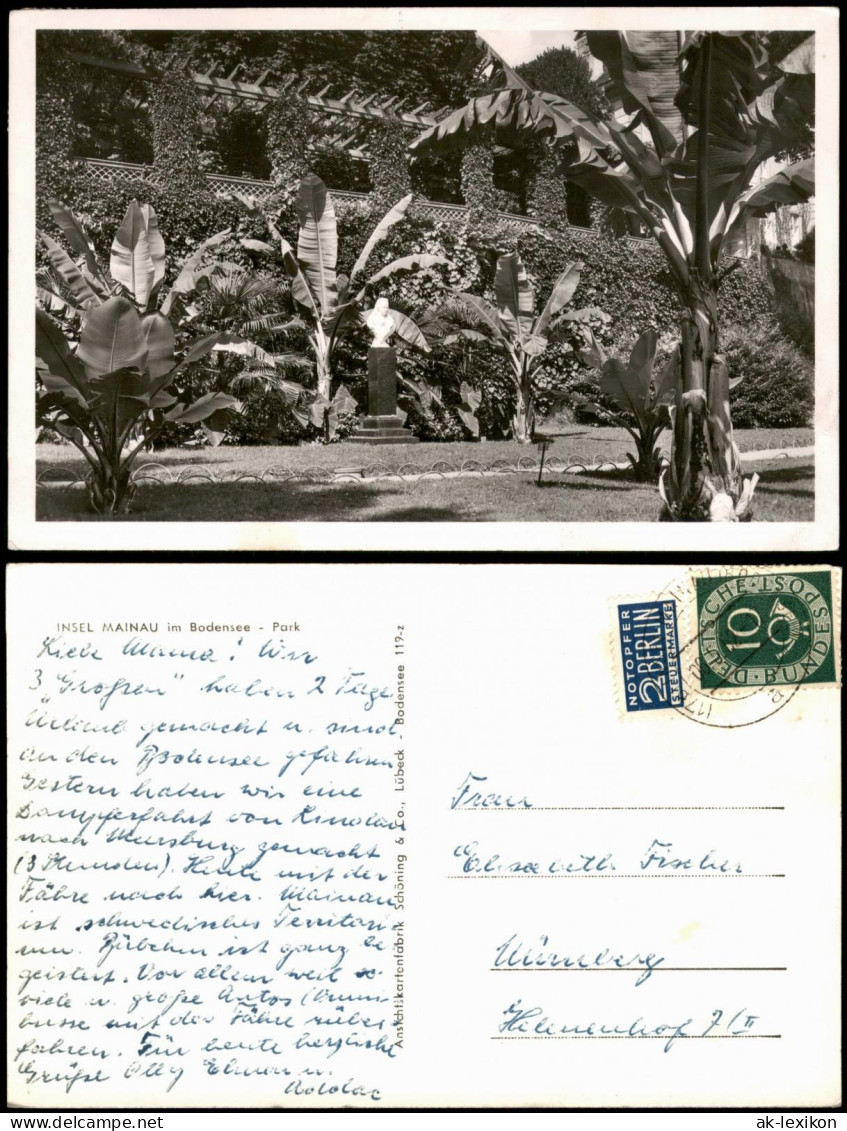 INSEL MAINAU im Bodensee - Park
Liebe Mama! Wir
3 "Großen" haben 2 Tage
Urlaub gemacht u. sind
an den Bodensee gefahren
Gestern haben wir eine
Dampferfahrt von
nach Meersburg gemacht
(3 Stunden). Heute mit der
Fähre nach hier. Mainau
ist schwedisches Territori-
um. Bübchen ist ganz be
geistert. Vor allem weil so
viele u. große Autos (Omni
busse mit der Fähre rüber
fahren. Für heute herzliche
Grüße Olly u.
Ansichtskartenfabrik Schöning & Co., Lübeck - Bodensee 119-z
NOTOPFER
2 BERLIN
STEUERMARKE
DEUTSCHE BUNDESPOST
10
Frau
Elisabeth Fischer
Nürnberg
Helenenhof 7/II
ak-lexikon